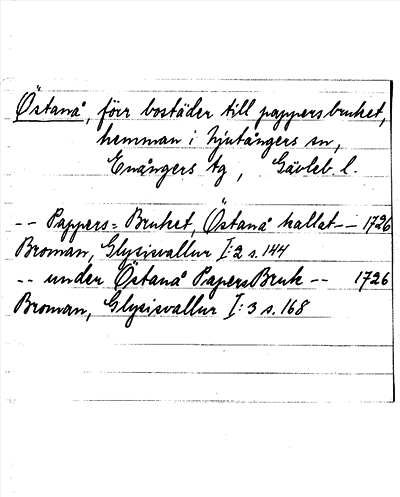 Östanå, förr bostäder till pappersbruket,
hemman i Njutångers sn,
Enångers tg, Gävleb. l.
-- Pappers=Bruket, Östanå kallat -- 1726
Broman, Glysisvallur I:2 s. 144
-- under Östanå PapersBruk -- 1726
Broman, Glysisvallur I:3 s. 168